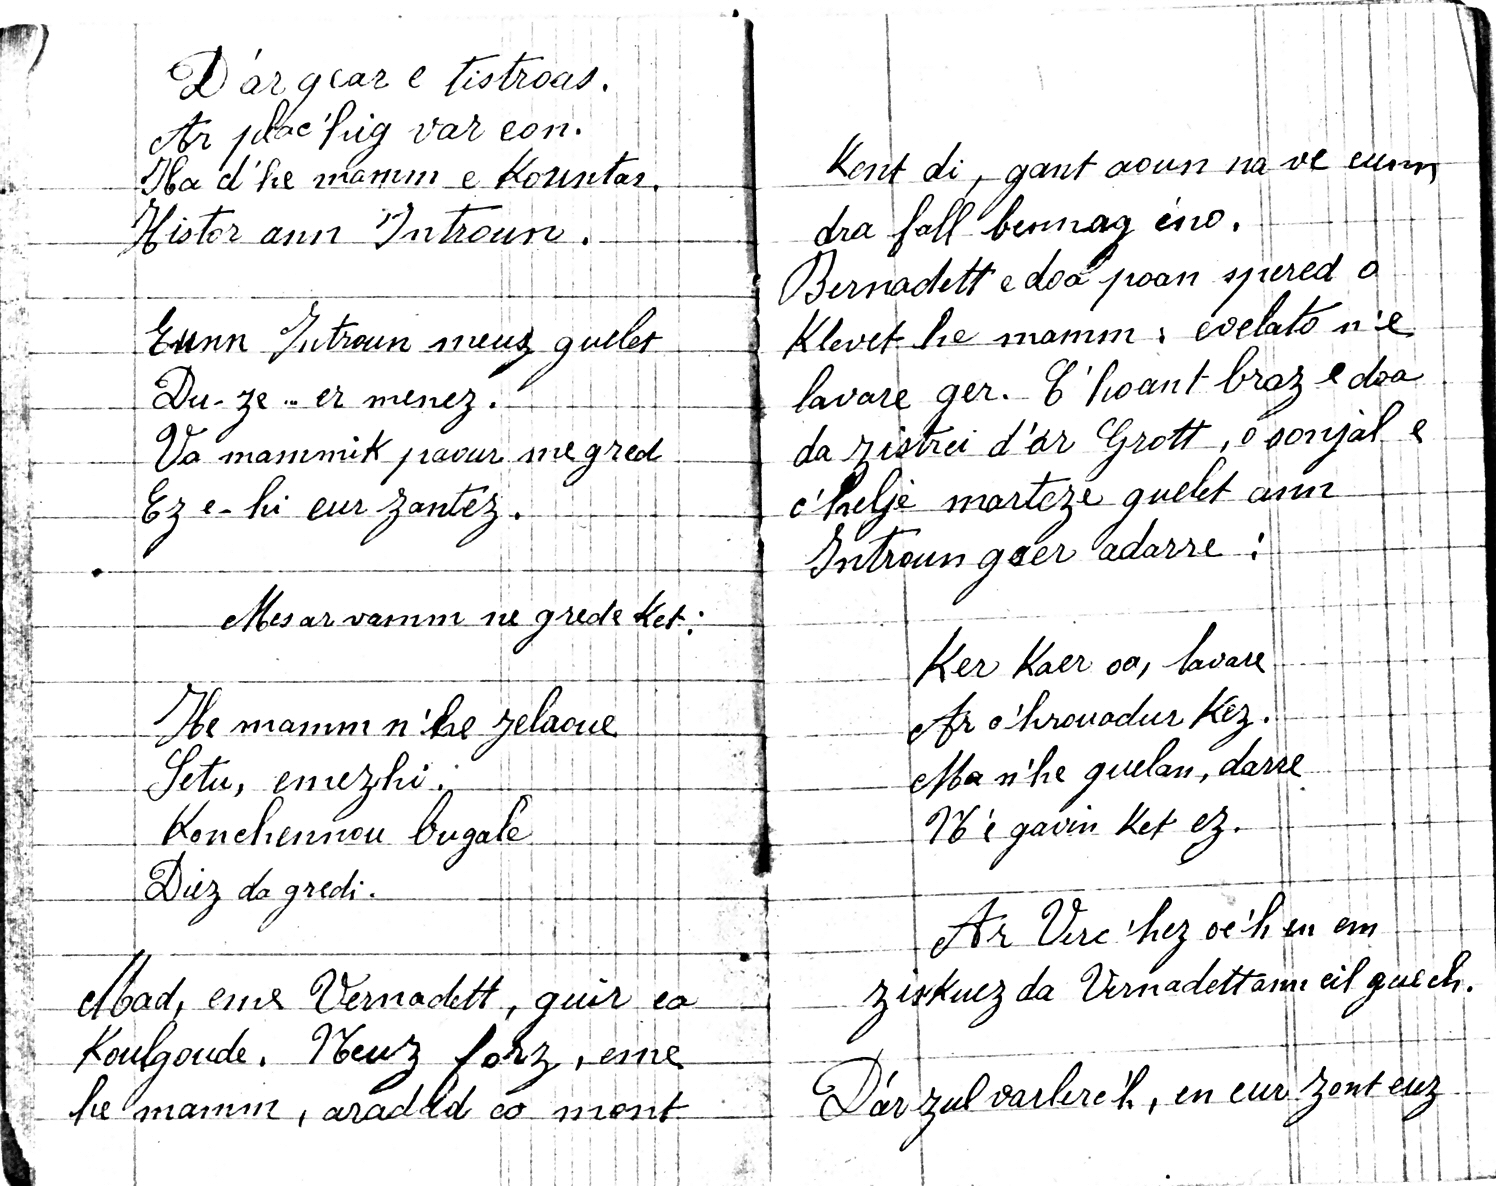 D'ar gear e tistroas.
Ar plac'hig var eon.
Ha d'he mamm e Kountas.
Histor ann Introun.
Eunn Introun meuz guelet
Du-ze-er menez.
Va mammik paour me gred
Ez e-hi eur zantez.
Mes ar vamm ne grede Ket:
He mamm n'he zelaoue
Setu, emezhi:
Konchennou bugale
Diez da gredi.
Mad, eme Vernadett, guir eo
Koulgoude. Neuz forz, eme
he mamm, arabad eo mont
Kent di, gant aoun na ve eunn
dra fall bennag eno.
Bernadett e doa poan spered o
Klevet he mamm; evelato n'e
lavare ger. C'hoant braz e doa
da zistrei d'ar Grott, o sonjal e
c'helje marteze guelet ann
Introun gaer adarre:
Ker Kaer oa, lavare
Ar c'hrouadur Kez.
Ma n'he guelan, darre
N'e gavin Ket ez.
Ar Verc'hez oc'h en em
ziskuez da Vernadett ann eil guech.
D'ar zul varlerc'h, en eur zont euz